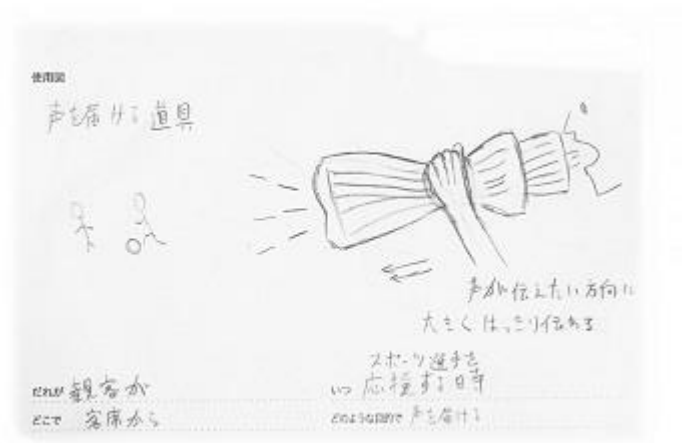 使用図
声を届ける道具
声が伝えたい方向に
大きくはっきり伝わる
だれが 観客が
スポーツ選手を
いつ 応援する時
どこで 客席から
どのような目的で 声を届ける